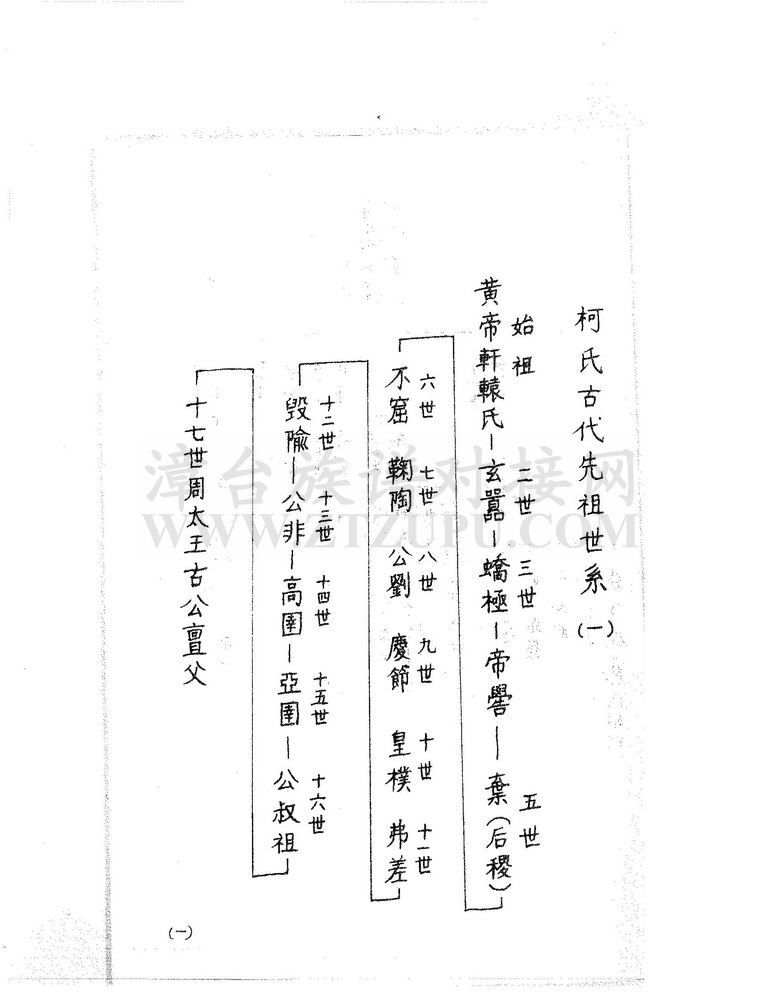 柯氏古代先祖世系(一)
始祖 二世 三世 五世
黃帝軒轅氏—玄囂—蟜極—帝嚳—棄(后稷)
六世 七世 八世 九世 十世 十一世
不窟 鞠陶 公劉 慶節 皇樸 弗差
十二世 十三世 十四世 十五世 十六世
毀隃—公非—高圉—亞圉—公叔祖
十七世周太王古公亶父
(一)
漳台族谱对接网
WWW.ZTZUPU.COM